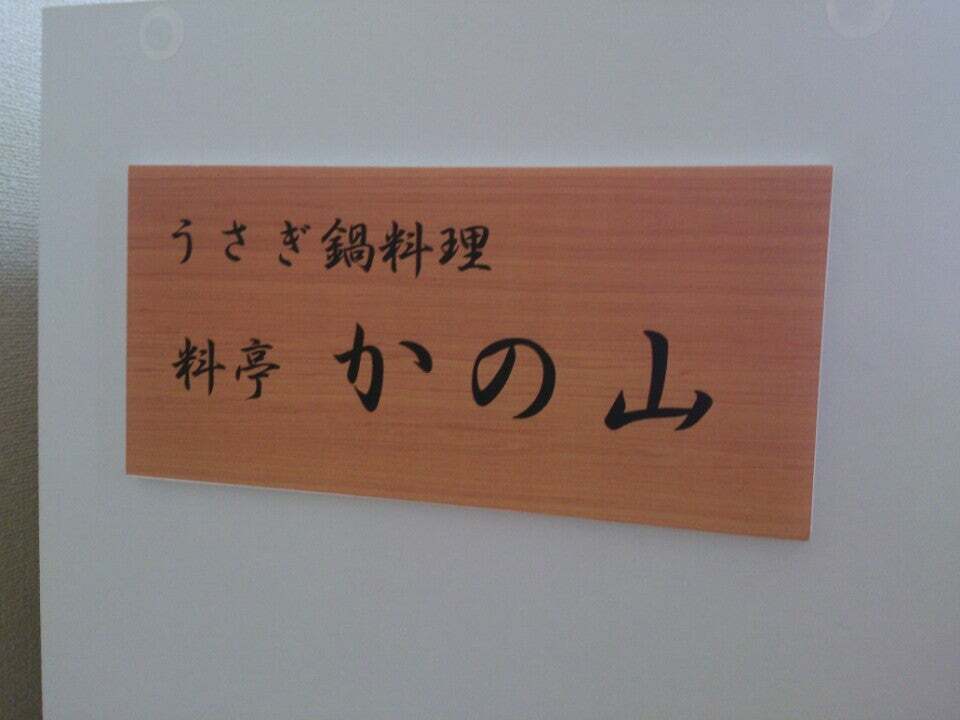 うさぎ鍋料理
料亭 かの山